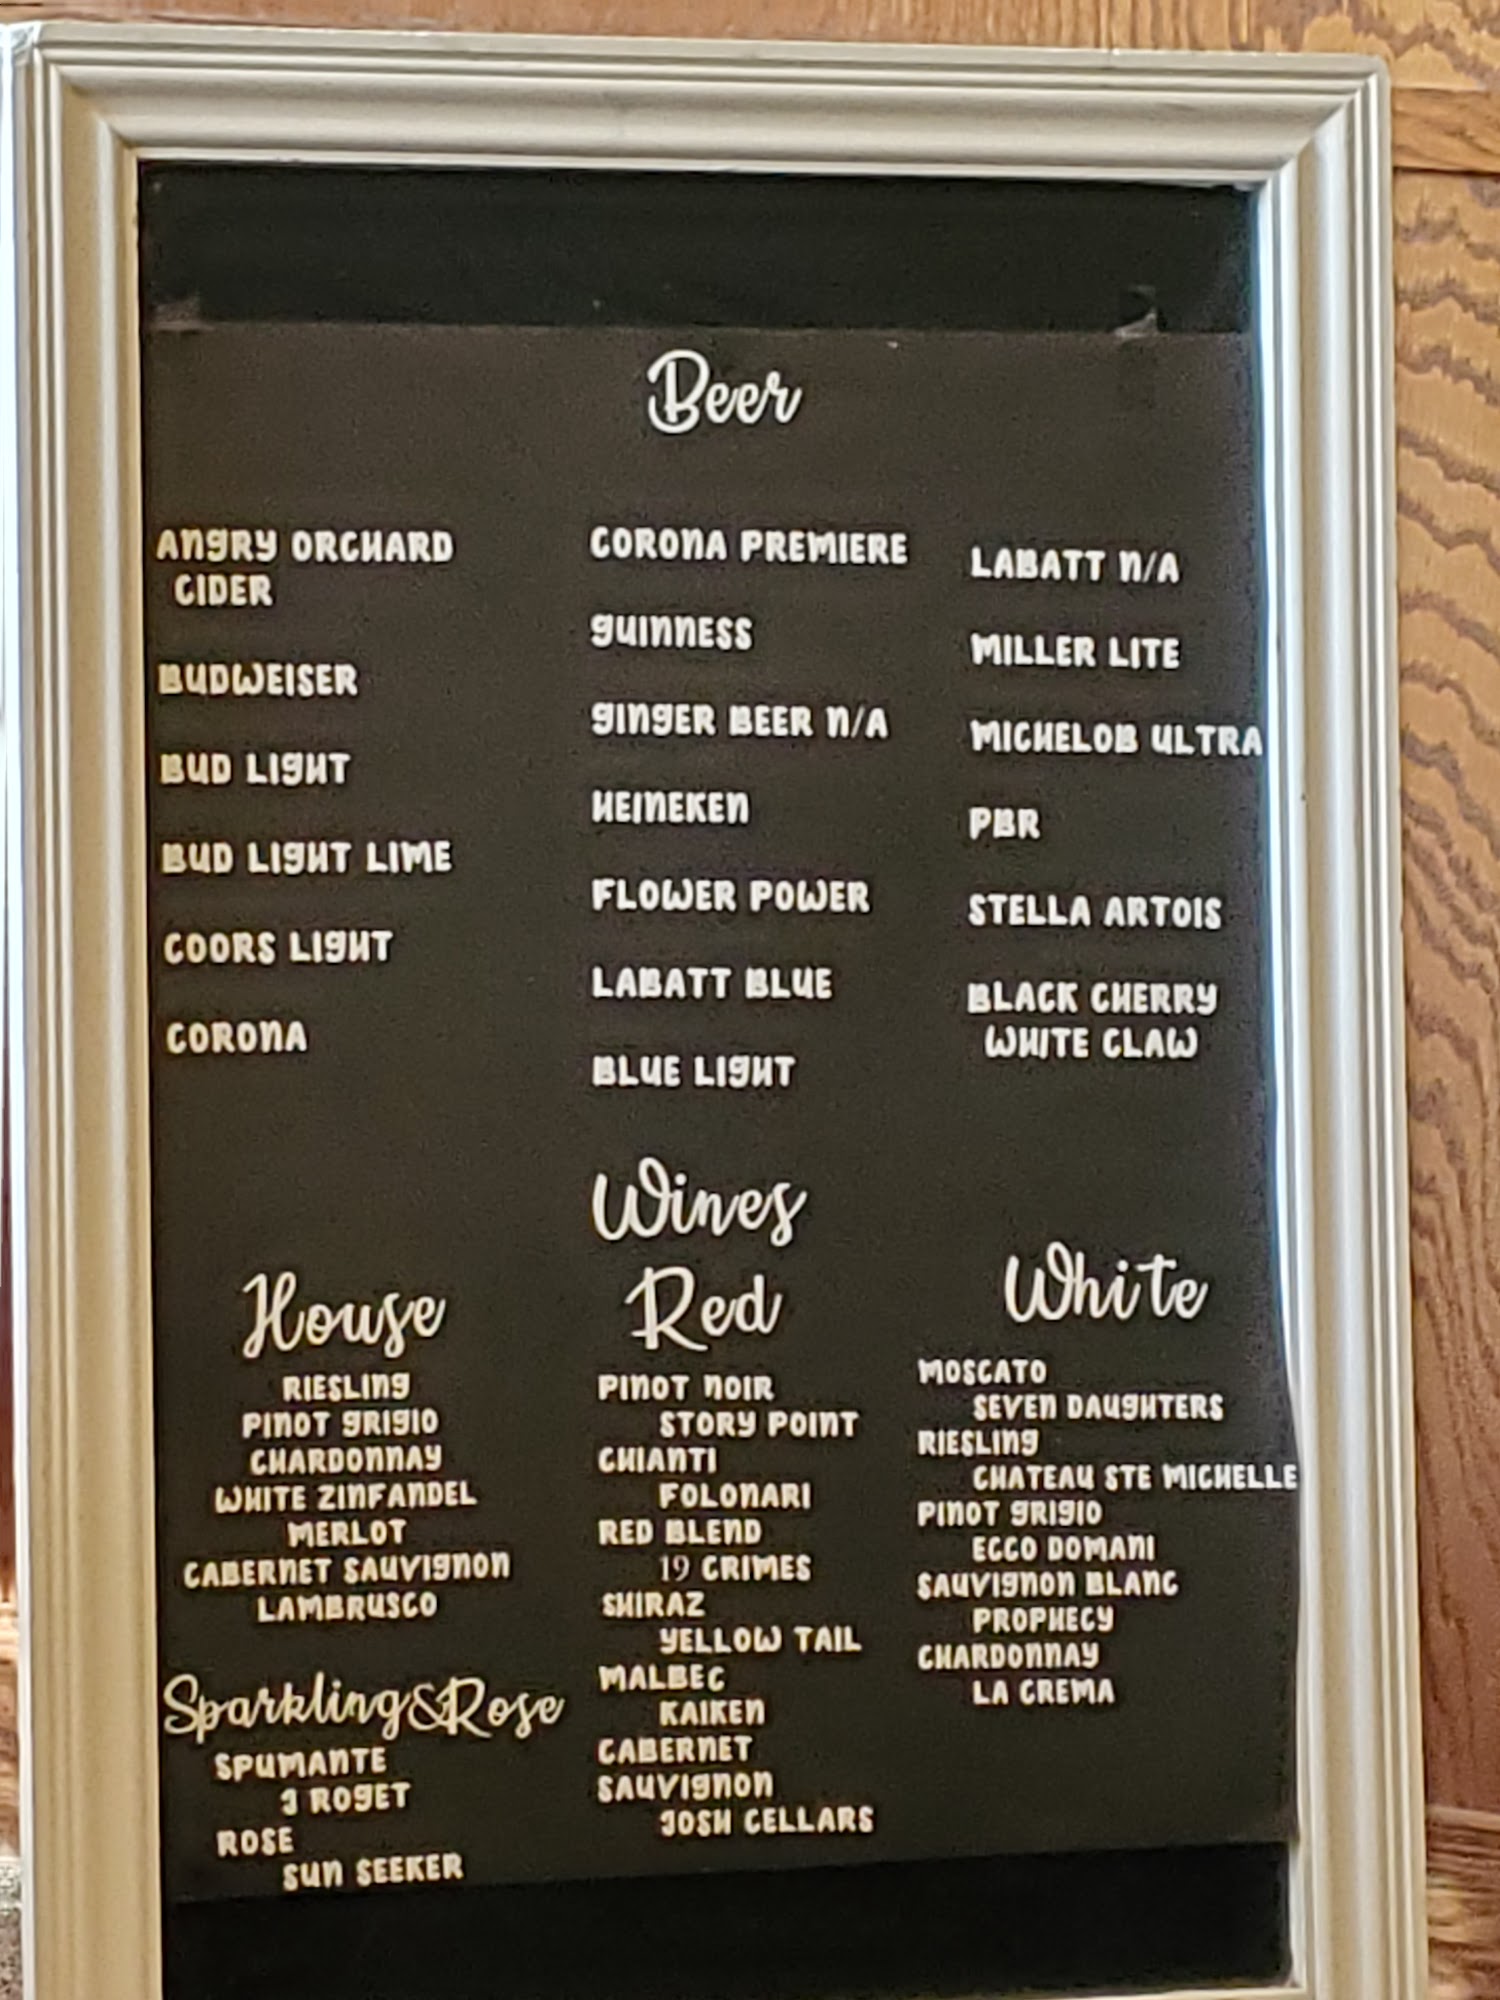 Beer
ANGRY ORCHARD
CIDER
BUDWEISER
BUD LIGHT
BUD LIGHT LIME
COORS LIGHT
CORONA
CORONA PREMIERE
GUINNESS
GINGER BEER N/A
HEINEKEN
FLOWER POWER
LABATT BLUE
BLUE LIGHT
LABATT N/A
MILLER LITE
MICHELOB ULTRA
PBR
STELLA ARTOIS
BLACK CHERRY
WHITE CLAW
Wines
House
RIESLING
PINOT GRIGIO
CHARDONNAY
WHITE ZINFANDEL
MERLOT
CABERNET SAUVIGNON
LAMBRUSCO
Sparkling&Rose
SPUMANTE
J ROGET
ROSE
SUN SEEKER
Red
PINOT NOIR
STORY POINT
CHIANTI
FOLONARI
RED BLEND
19 CRIMES
SHIRAZ
YELLOW TAIL
MALBEC
KAIKEN
CABERNET
SAUVIGNON
JOSH CELLARS
White
MOSCATO
SEVEN DAUGHTERS
RIESLING
CHATEAU STE MICHELLE
PINOT GRIGIO
ECCO DOMANI
SAUVIGNON BLANC
PROPHECY
CHARDONNAY
LA CREMA